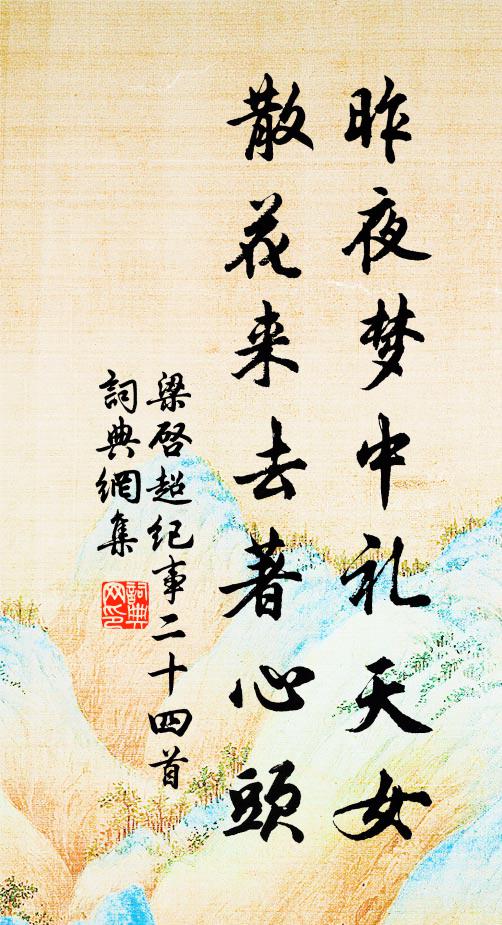 昨夜梦中礼天女
散花来去著心頭
梁啓超纪事二十四首
詞典網集
詞典
网印